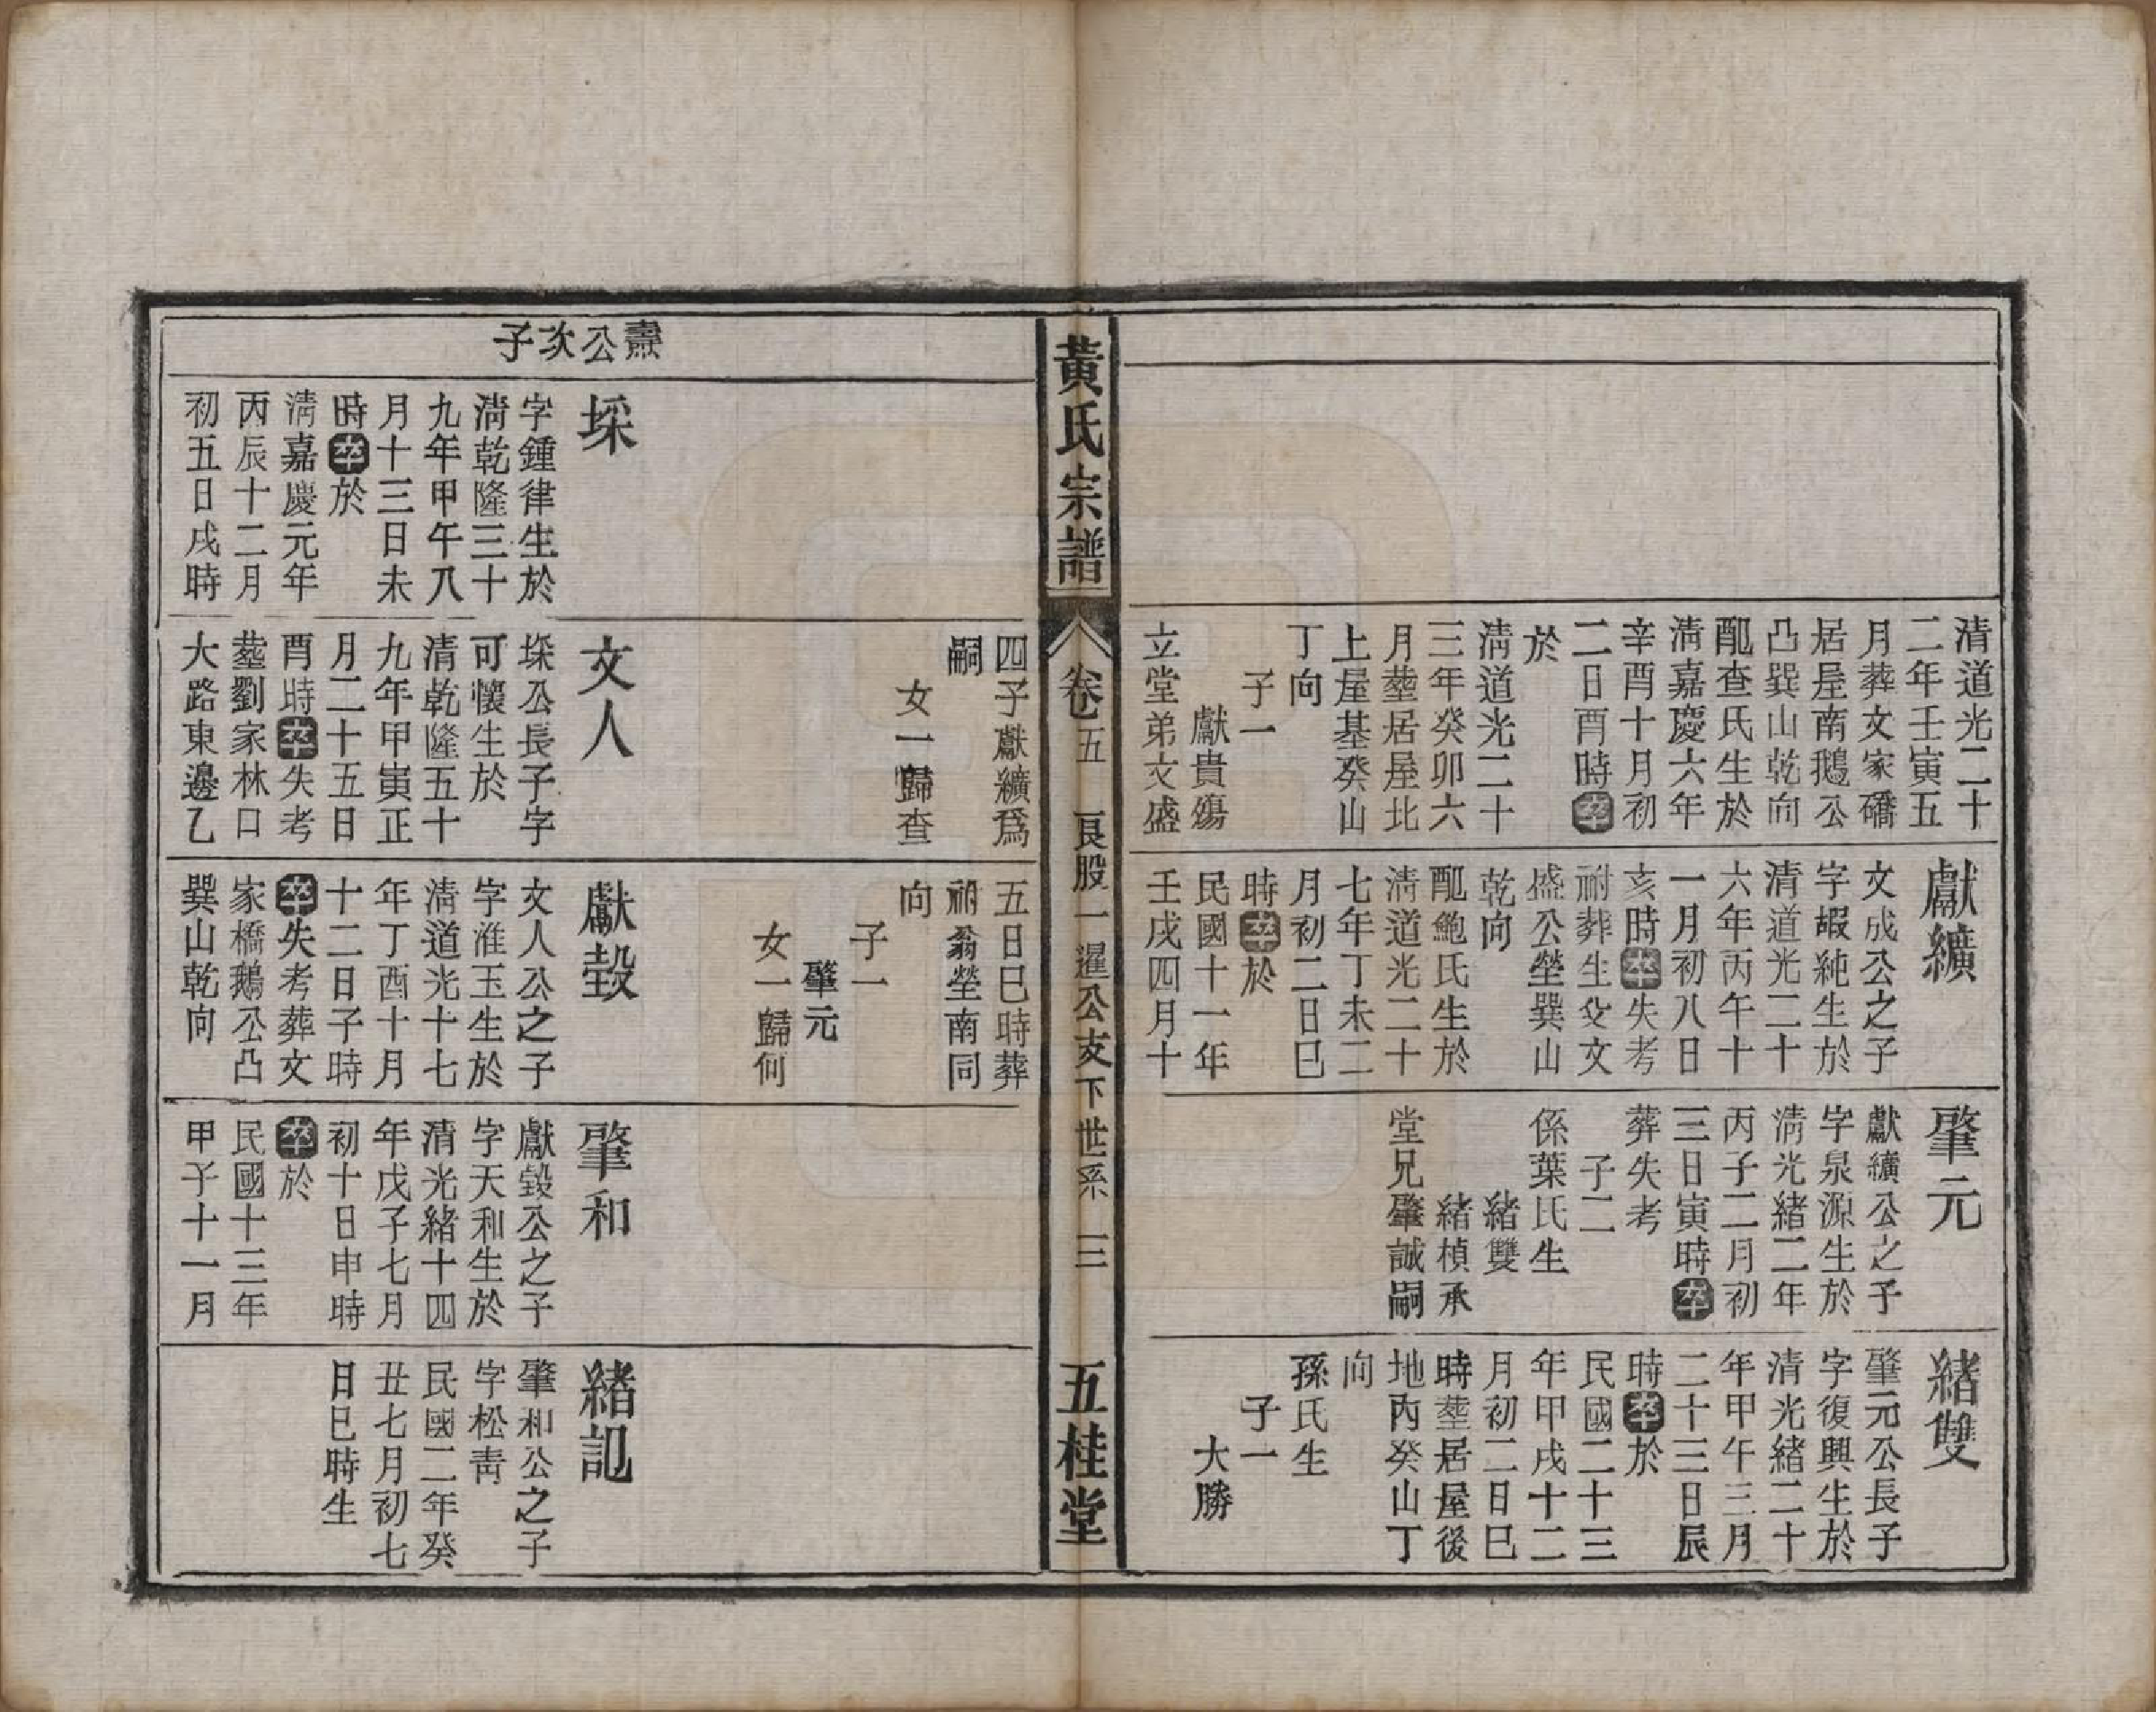 清道光二十
二年壬寅五
月葬文家礄
居屋南鵝公
凸巽山乾向
配查氏生於
清嘉慶六年
辛酉十月初
二日酉時卒
於
清道光二十
三年癸卯六
月塟居屋北
上屋基癸山
丁向
子一
獻貴殤
立堂弟文盛
獻纊
文成公之子
字嘏純生於
清道光二十
六年丙午十
一月初八日
亥時卒失考
祔葬生父文
盛公塋巽山
乾向
配鮑氏生於
清道光二十
七年丁未二
月初二日巳
時卒於
民國十一年
壬戌四月十
肇元
獻纊公之子
字泉源生於
清光緒二年
丙子二月初
三日寅時卒
葬失考
子二
係葉氏生
緒雙
緒楨承
堂兄肇誠嗣
緒雙
肇元公長子
字復興生於
清光緒二十
年甲午三月
二十三日辰
時卒於
民國二十三
年甲戌十二
月初二日巳
時塟居屋後
地內癸山丁
向
孫氏生
子一
大勝
黃氏宗譜
卷五
良股一暹公支下世系
三
五桂堂
四子獻纊爲
嗣
女一歸查
五日巳時葬
祔翁塋南同
向
子一
肇元
女一歸何
燾公次子
埰
字鍾律生於
清乾隆三十
九年甲午八
月十三日未
時卒於
清嘉慶元年
丙辰十二月
初五日戌時
文人
埰公長子字
可懷生於
清乾隆五十
九年甲寅正
月二十五日
酉時卒失考
塟劉家林口
大路東邊乙
獻瑴
文人公之子
字淮玉生於
清道光十七
年丁酉十月
十二日子時
卒失考葬文
家橋鵝公凸
巽山乾向
肇和
獻瑴公之子
字天和生於
清光緒十四
年戊子七月
初十日申時
卒於
民國十三年
甲子十一月
緒訊
肇和公之子
字松靑
民國二年癸
丑七月初七
日巳時生